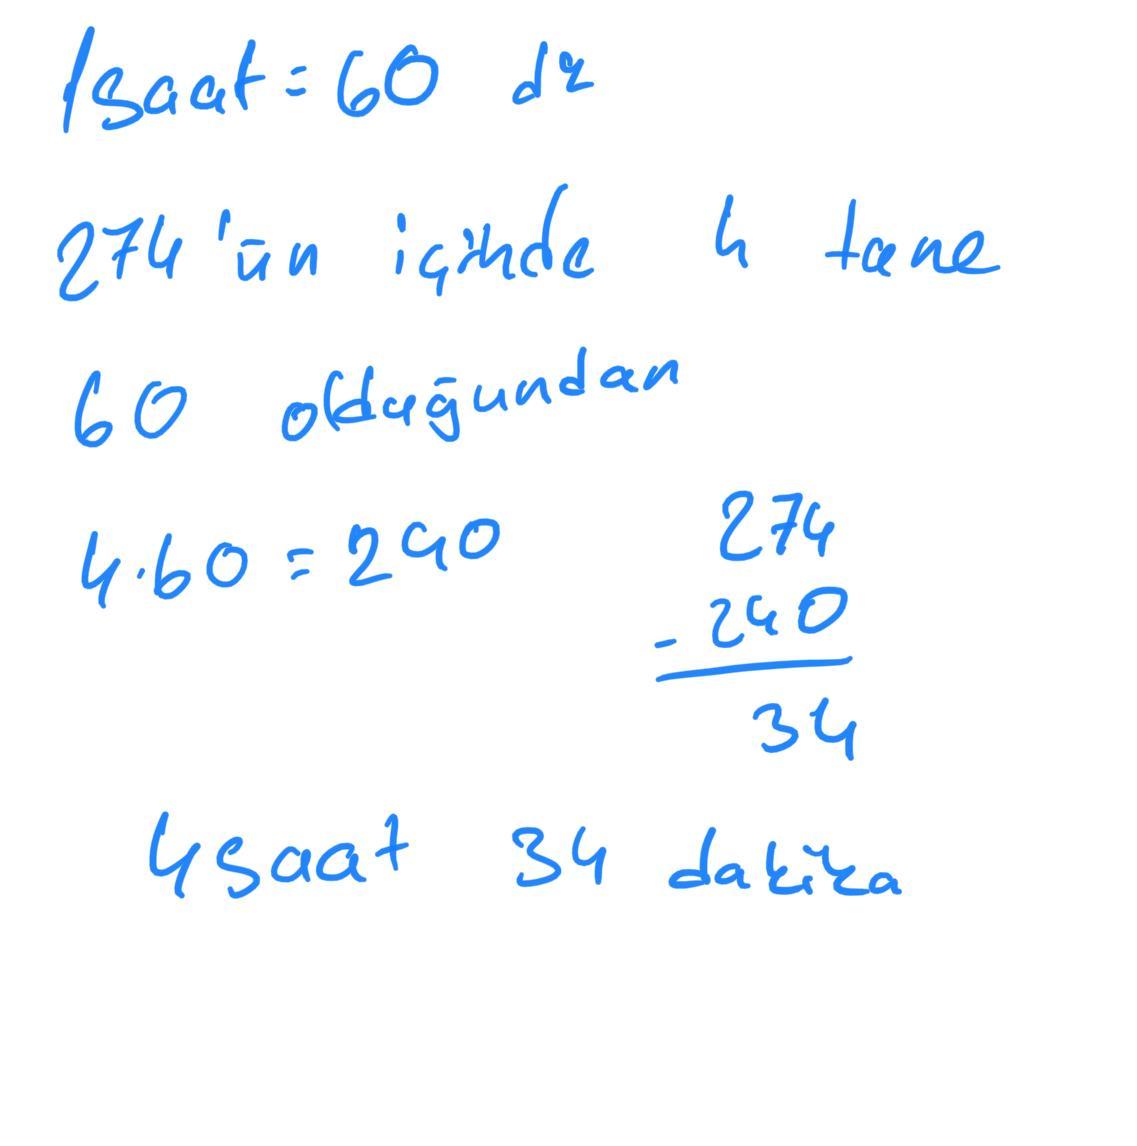 1saat = 60 dk
274'ün içinde 4 tane
60 olduğundan
4.60 = 240
274
- 240
34
4saat 34 dakika